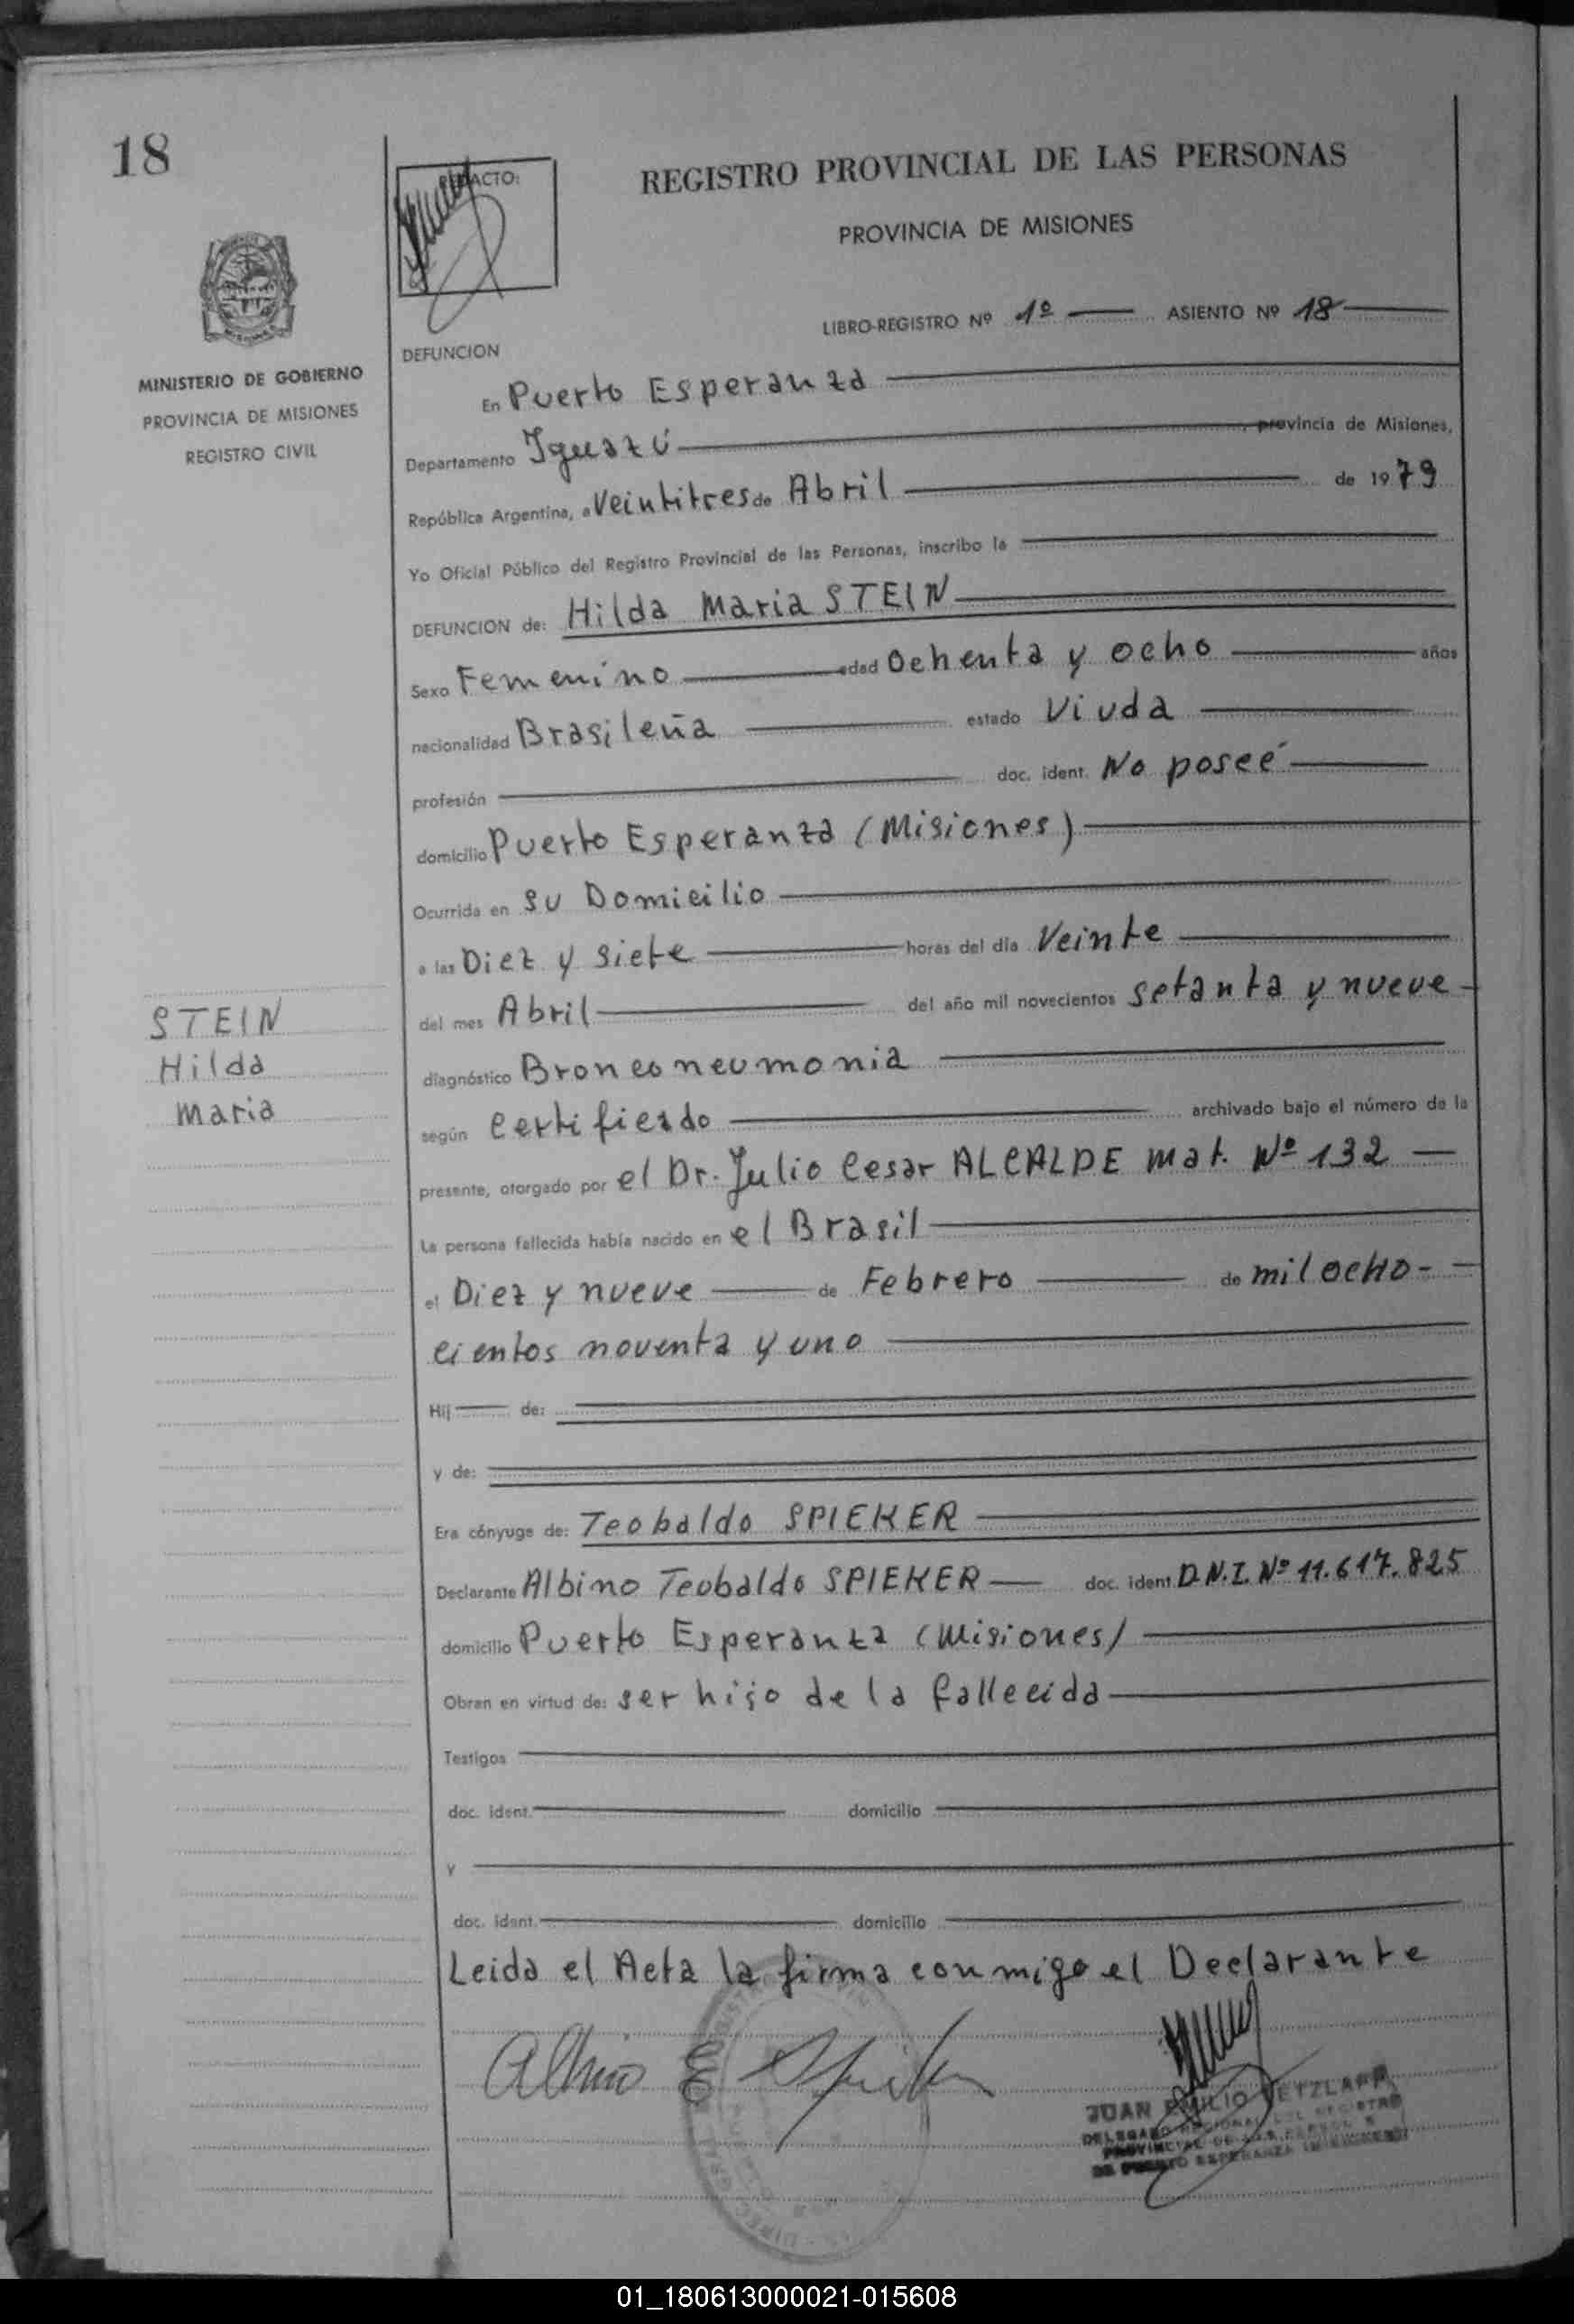 18
REDACTO:
REGISTRO PROVINCIAL DE LAS PERSONAS
PROVINCIA DE MISIONES
LIBRO-REGISTRO Nº 1º ASIENTO Nº 18
MINISTERIO DE GOBIERNO
PROVINCIA DE MISIONES
REGISTRO CIVIL
DEFUNCION
En Puerto Esperanza
Departamento Iguazú, provincia de Misiones,
República Argentina, a Veintitres de Abril de 1979
Yo Oficial Público del Registro Provincial de las Personas, inscribo la
DEFUNCION de: Hilda Maria STEIN
Sexo Femenino edad Ochenta y ocho años
nacionalidad Brasileña estado Viuda
profesión doc. ident. No poseé
domicilio Puerto Esperanza (Misiones)
Ocurrida en su Domicilio
a las Diez y siete horas del día Veinte
del mes Abril del año mil novecientos setanta y nueve
STEIN
Hilda
Maria
diagnóstico Bronconeumonia
según Certificado archivado bajo el número de la
presente, otorgado por el Dr. Julio Cesar ALCALDE Mat. Nº 132
La persona fallecida había nacido en el Brasil
el Diez y nueve de Febrero de mil ocho-
cientos noventa y uno
Hij de:
y de:
Era cónyuge de: Teobaldo SPIEKER
Declarante Albino Teobaldo SPIEKER doc. ident. D.N.I. Nº 11.617.825
domicilio Puerto Esperanza (Misiones)
Obran en virtud de: ser hijo de la fallecida
Testigos
doc. ident. domicilio
y
doc. ident. domicilio
Leida el Acta la firma conmigo el Declarante
Albino E Spieker
JUAN EMILIO RETZLAFF
DELEGADO REGIONAL DEL REGISTRO
PROVINCIAL DE LAS PERSONAS
DE PUERTO ESPERANZA (MISIONES)
01_180613000021-015608